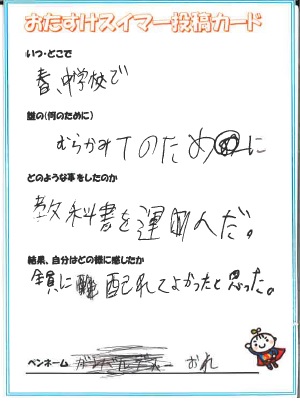 おたすけスイマー投稿カード
いつ・どこで
春、中学校で
誰の(何のために)
むらかみTのために
どのような事をしたのか
教科書を運んだ。
結果、自分はどの様に感じたか
全員に配れてよかったと思った。
ペンネーム おれ